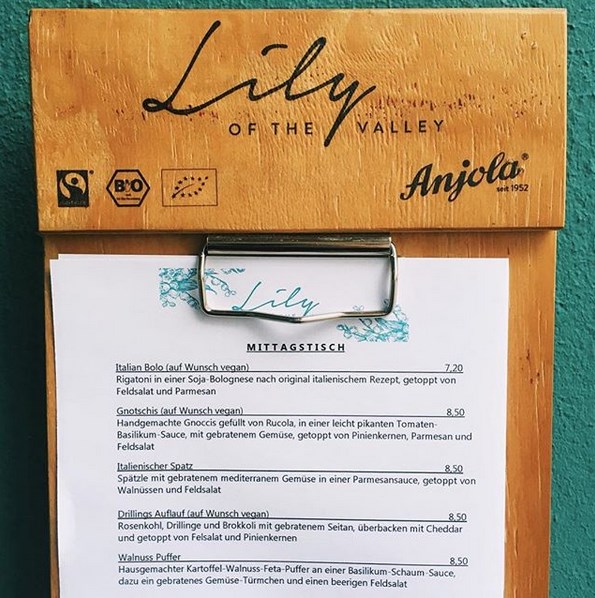 Lily
OF THE VALLEY
BIO
Anjola®
seit 1952
Lily
MITTAGSTISCH
Italian Bolo (auf Wunsch vegan) 7,20
Rigatoni in einer Soja-Bolognese nach original italienischem Rezept, getoppt von
Feldsalat und Parmesan
Gnotschis (auf Wunsch vegan) 8,50
Handgemachte Gnoccis gefüllt von Rucola, in einer leicht pikanten Tomaten-
Basilikum-Sauce, mit gebratenem Gemüse, getoppt von Pinienkernen, Parmesan und
Feldsalat
Italienischer Spatz 8,50
Spätzle mit gebratenem mediterranem Gemüse in einer Parmesansauce, getoppt von
Walnüssen und Feldsalat
Drillings Auflauf (auf Wunsch vegan) 8,50
Rosenkohl, Drillinge und Brokkoli mit gebratenem Seitan, überbacken mit Cheddar
und getoppt von Felsalat und Pinienkernen
Walnuss Puffer 8,50
Hausgemachter Kartoffel-Walnuss-Feta-Puffer an einer Basilikum-Schaum-Sauce,
dazu ein gebratenes Gemüse-Türmchen und einen beerigen Feldsalat